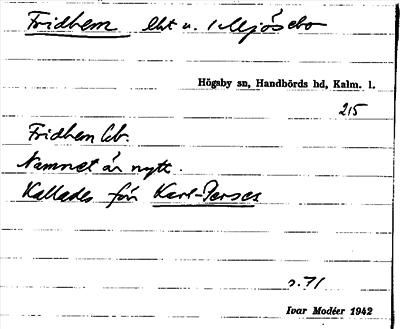 Fridhem lht u. Mjösebo
Högsby sn, Handbörds hd, Kalm. l.
215
Fridhem lb.
Namnet är nytt.
Kallades för Karl-Perses
s. 71
Ivar Modéer 1942